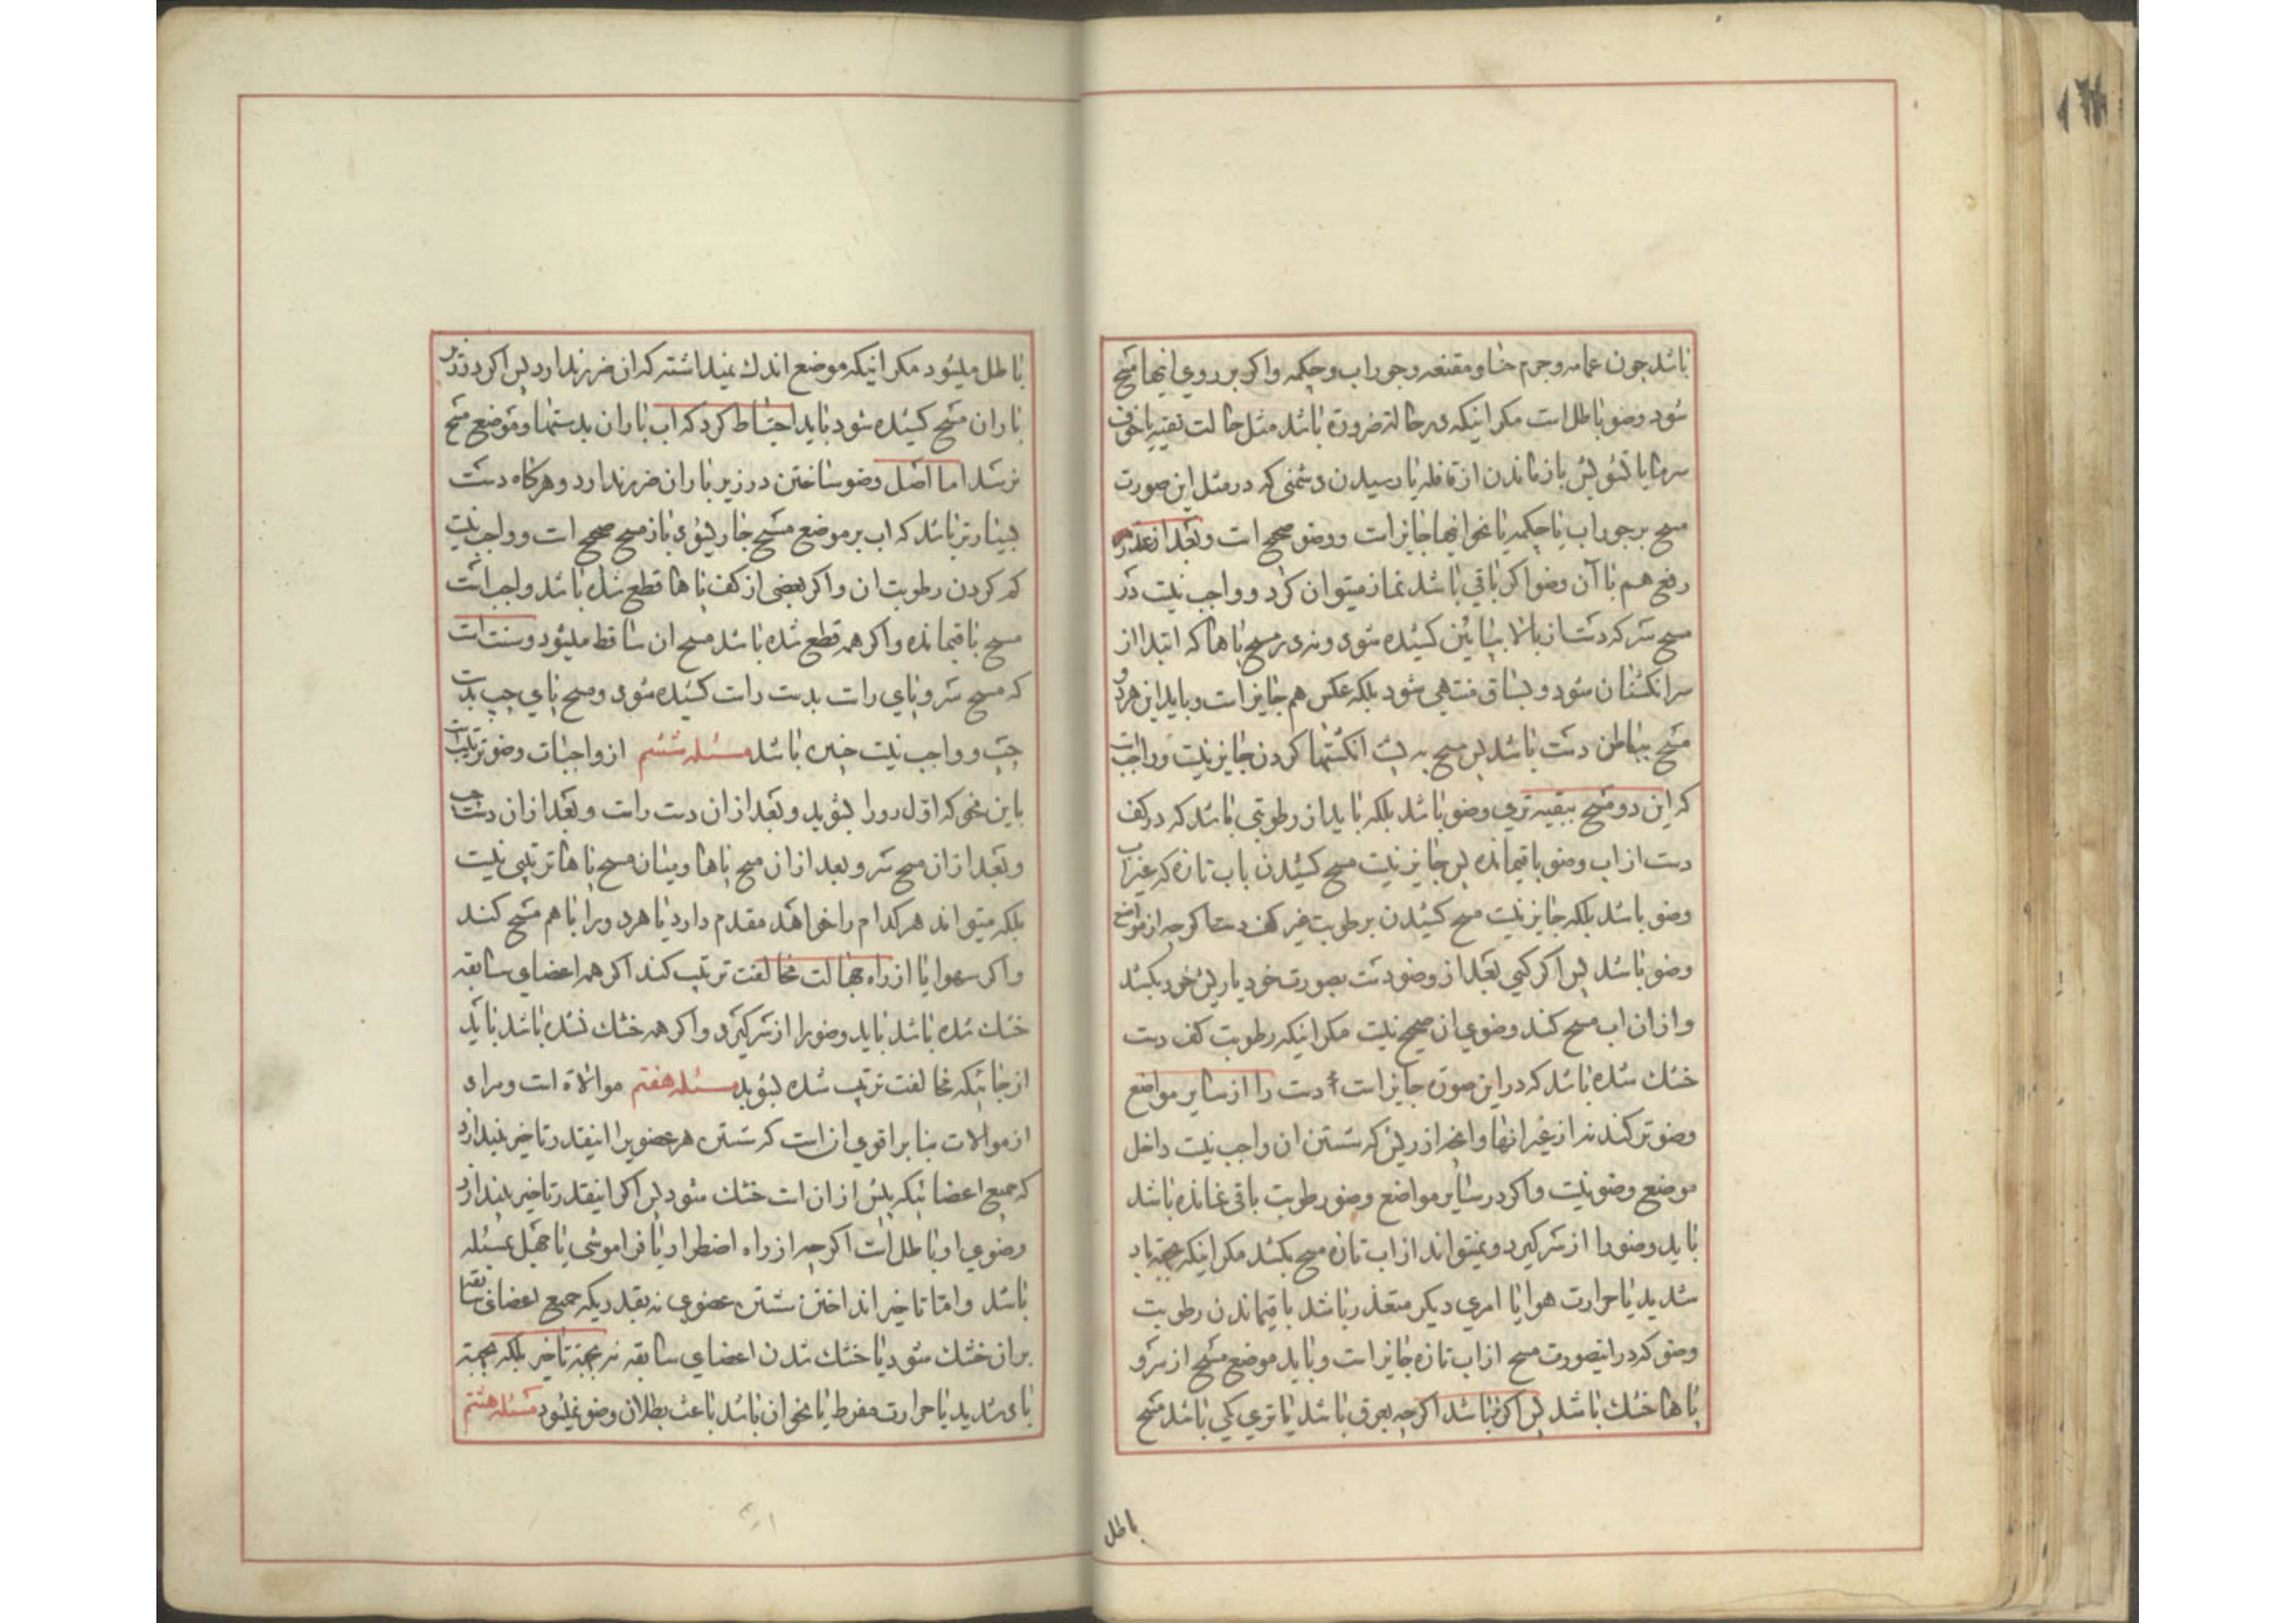 باشد چون عمامه و جرم حنا و مقنعه و جوراب و چکمه و اکر بر روی اینها مسح
شود وضو باطل است مکر اینکه در حالة ضرورة باشد مثل حالت تقیه یا خوف
سرما یا تشویش باز ماندن از قافله یا رسیدن دشمنی که در مثل این صورت
مسح بر جوراب یا چکمه یا نحو اینها جایز است و وضو صحیح است و بعد از عذر
رفع هم با آن وضو اکر باقی باشد نماز میتوان کرد و واجب نیست در
مسح سر که دست از بالا بپائین کشیده شود و نه در مسح پاها که ابتدا از
سر انکشتان شود و بساق منتهی شود بلکه عکس هم جایز است و باید این هر دو
مسح بباطن دست باشد پس مسح به پشت انکشتها کردن جایز نیست و واجب است
که این دو مسح ببقیه تری وضو باشد بلکه باید از رطوبتی باشد که در کف
دست از اب وضو باقیمانده پس جایز نیست مسح کشیدن باب تازه که غیر اب
وضو باشد بلکه جایز نیست مسح کشیدن برطوبت غیر کف دست اکر چه از مواضع
وضو باشد پس اکر کسی بعد از وضو دست بصورت خود یا ریش خود بکشد
و از ان اب مسح کند وضوی ان صحیح نیست مکر اینکه رطوبت کف دست
خشک شده باشد که در این صورة جایز است دست را از سایر مواضع
وضو تر کند نه از غیر انها و انچه از ریش که شستن ان واجب نیست داخل
موضع وضو نیست و اکر در سایر مواضع وضو رطوبت باقی نمانده باشد
باید وضو را از سر کیرد و نمیتواند از اب تازه مسح بکشد مکر اینکه بجهة باد
شدید یا حرارت هوا یا امری دیکر متعذر باشد باقیماندن رطوبت
وضو که در اینصورت مسح از اب تازه جایز است و باید موضع مسح از سر و
پاها خشک باشد پس اکر تر باشد اکر چه بعرق باشد یا تری کمی باشد مسح
باطل
باطل میشود مکر اینکه موضع اندک نمی داشته که ان ضرر ندارد پس اکر در زیر
باران مسح کشیده شود باید احتیاط کرد که اب باران بدستها و موضع مسح
نرسد اما اصل وضو ساختن در زیر باران ضرر ندارد و هرکاه دست
بسیار تر باشد که اب بر موضع مسح جاری شود باز مسح صحیح است و واجب نیست
کم کردن رطوبت ان و اکر بعضی از کف پاها قطع شده باشد واجب است
مسح باقیمانده و اکر همه قطع شده باشد مسح ان ساقط میشود و سنت است
که مسح سر و پای راست بدست راست کشیده شود و مسح پای چپ بدست
چپ و واجب نیست چنین باشد مسئله ششم از واجبات وضو ترتیب است
باین نحو که اول رو را بشوید و بعد از ان دست راست و بعد از ان دست چپ
و بعد از ان مسح سر و بعد از ان مسح پاها و میان مسح پاها ترتیبی نیست
بلکه میتواند هر کدام را خواهد مقدم دارد یا هر دو را با هم مسح کند
و اکر سهوا یا از راه جهالت مخالفت ترتیب کند اکر همه اعضای سابقه
خشک شده باشد باید وضو را از سر کیرد و اکر همه خشک نشده باشد باید
از جائیکه مخالفت ترتیب شده بشوید مسئله هفتم موالاة است و مراد
از موالات بنا بر اقوی ان است که شستن هر عضویرا اینقدر تاخیر نیندازد
که جمیع اعضائیکه پیش از ان است خشک شود پس اکر اینقدر تاخیر بیندازد
وضوی او باطل است اکر چه از راه اضطرار یا فراموشی یا جهل بمسئله
باشد و اما تاخیر انداختن شستن عضوی نه بقدریکه جمیع اعضای سابقه
بران خشک شود یا خشک شدن اعضای سابقه نه بجهة تاخیر بلکه بجهة
بادی شدید یا حرارت مفرط یا نحو ان باشد باعث بطلان وضو نمیشود مسئله هشتم